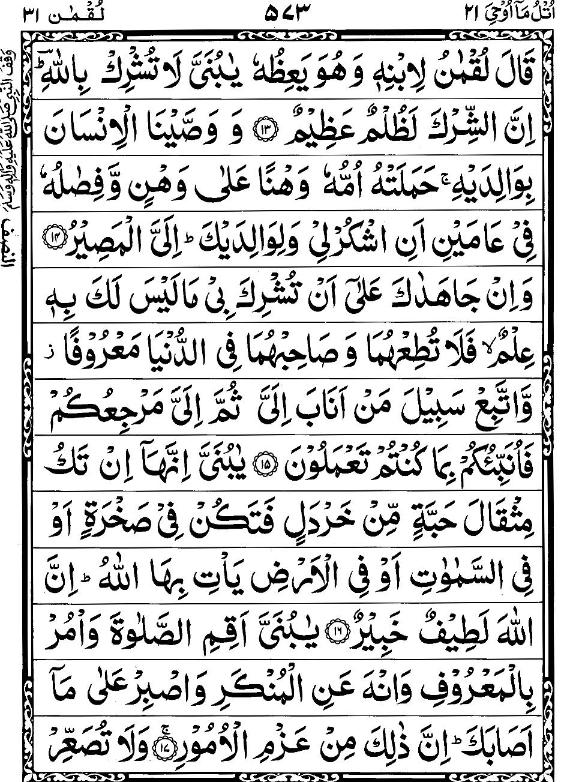 اتل ما اوحی ۲۱ ۵۷۳ لقمٰن ۳۱
قَالَ لُقْمٰنُ لِابْنِهٖ وَهُوَ يَعِظُهٗ يٰبُنَيَّ لَا تُشْرِكْ بِاللّٰهِ ؕ
اِنَّ الشِّرْكَ لَظُلْمٌ عَظِيْمٌ ﴿۱۳﴾ وَ وَصَّيْنَا الْاِنْسَانَ
بِوَالِدَيْهِ ۚ حَمَلَتْهُ اُمُّهٗ وَهْنًا عَلٰى وَهْنٍ وَّفِصٰلُهٗ
فِيْ عَامَيْنِ اَنِ اشْكُرْلِيْ وَلِوَالِدَيْكَ ؕ اِلَيَّ الْمَصِيْرُ ﴿۱۴﴾
وَاِنْ جَاهَدٰكَ عَلٰٓى اَنْ تُشْرِكَ بِيْ مَا لَيْسَ لَكَ بِهٖ
عِلْمٌ ۙ فَلَا تُطِعْهُمَا وَ صَاحِبْهُمَا فِى الدُّنْيَا مَعْرُوْفًا ز
وَّاتَّبِعْ سَبِيْلَ مَنْ اَنَابَ اِلَيَّ ثُمَّ اِلَيَّ مَرْجِعُكُمْ
فَاُنَبِّئُكُمْ بِمَا كُنْتُمْ تَعْمَلُوْنَ ﴿۱۵﴾ يٰبُنَيَّ اِنَّهَآ اِنْ تَكُ
مِثْقَالَ حَبَّةٍ مِّنْ خَرْدَلٍ فَتَكُنْ فِيْ صَخْرَةٍ اَوْ
فِى السَّمٰوٰتِ اَوْ فِى الْاَرْضِ يَاْتِ بِهَا اللّٰهُ ؕ اِنَّ
اللّٰهَ لَطِيْفٌ خَبِيْرٌ ﴿۱۶﴾ يٰبُنَيَّ اَقِمِ الصَّلٰوةَ وَاْمُرْ
بِالْمَعْرُوْفِ وَانْهَ عَنِ الْمُنْكَرِ وَاصْبِرْ عَلٰى مَآ
اَصَابَكَ ؕ اِنَّ ذٰلِكَ مِنْ عَزْمِ الْاُمُوْرِ ۚ ﴿۱۷﴾ وَلَا تُصَعِّرْ
وقف النبی صلی اللہ علیہ والہ وسلم
النصف